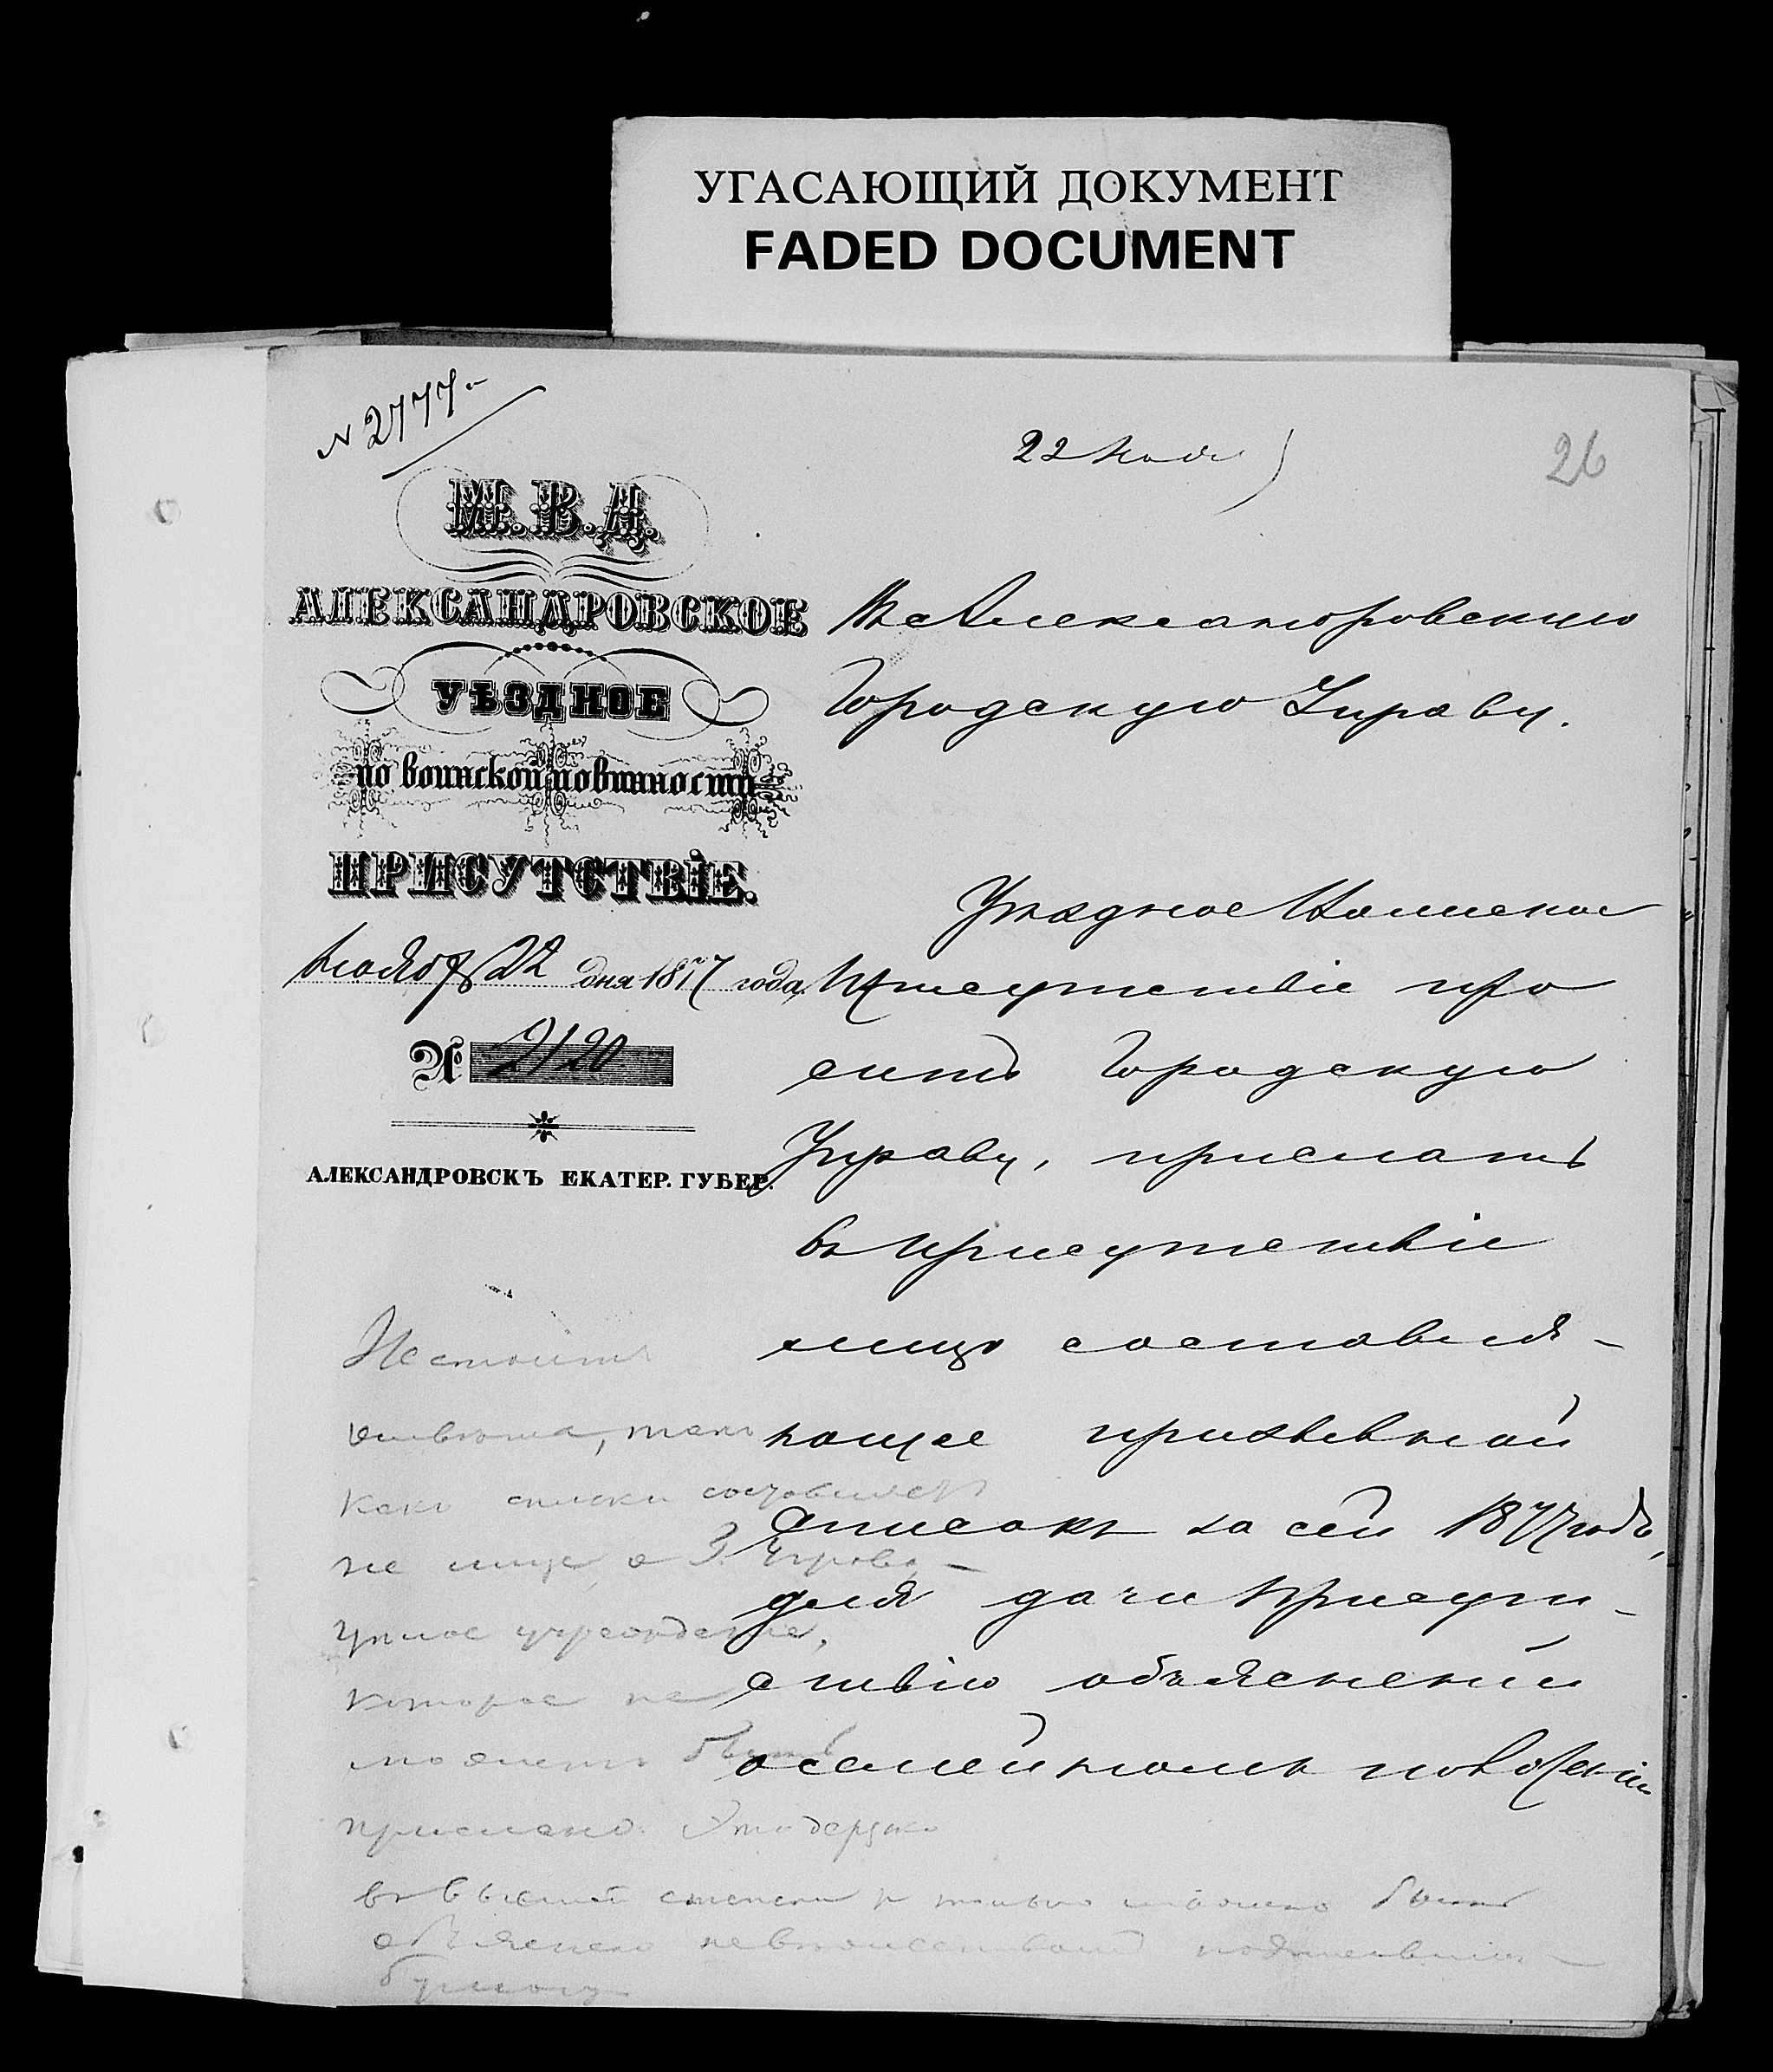 УГАСАЮЩИЙ ДОКУМЕНТ
FADED DOCUMENT
№ 2777
22 Нояб
26
М.В.Д.
АЛЕКСАНДРОВСКОЕ
УѢЗДНОЕ
по воинской повинности
ПРИСУТСТВІЕ.
Ноября 22 дня 1877 года
№ 2120
АЛЕКСАНДРОВСКЪ ЕКАТЕР. ГУБЕР.
Въ Александровскую
Городскую Управу.
Уѣздное Воинское
Присутствіе про
ситъ Городскую
Управу, прислать
въ присутствіе
лицо составля-
ющее призывной
списокъ за сей 1877 годъ,
для дачи Присут-
ствію объясненій
о семейномъ положеніи
Не стоитъ
отвѣта, такъ
какъ списки составляетъ
не лице, а Г. Управа —
цѣлое учрежденіе,
которое не
можетъ быть
прислано. Это дерзко
въ высшей степени и только можно быть
объяснено невѣжествомъ подписавшихъ
бумагу